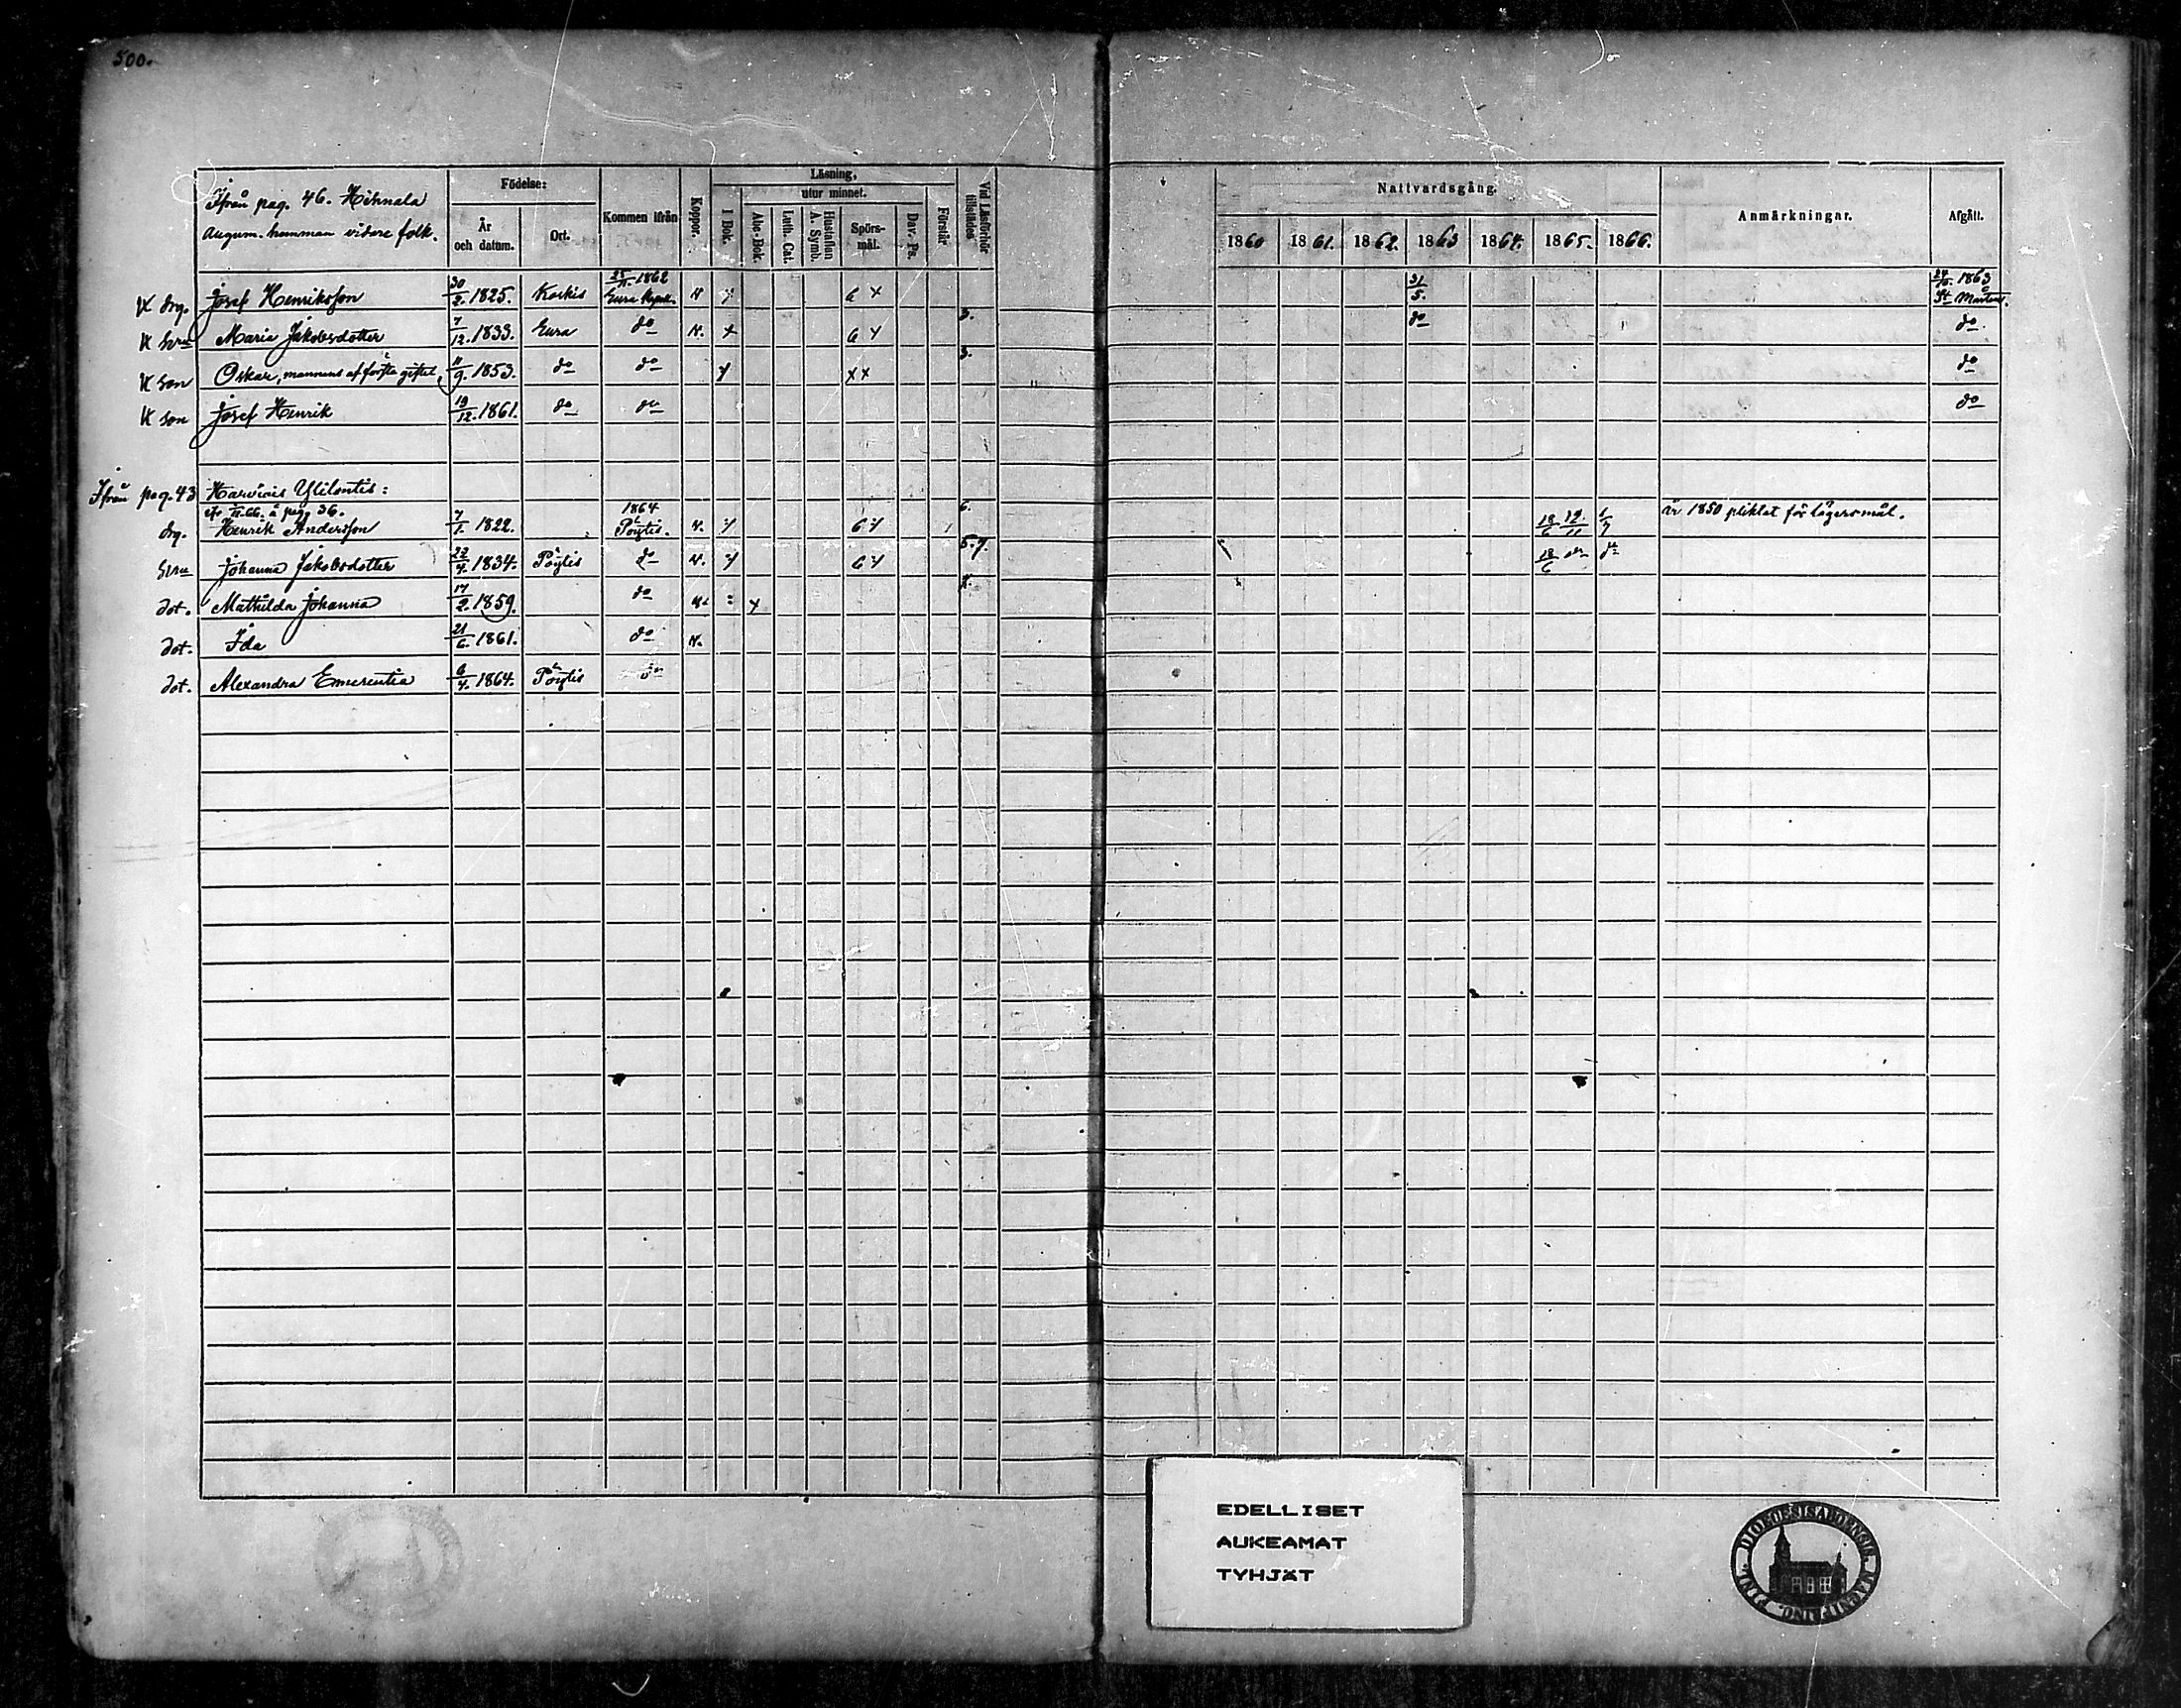 500.
Ifrån pag. 46. Hihnala
augum. hemman vidare folk.
Födelse:
År
och datum.
Ort.
Kommen ifrån
Koppor.
Läsning,
utur minnet.
I Bok.
Abc-Bok.
Luth. Cat.
Hustaflan
A. Symb.
Spörs-
mål.
Dav. Ps.
Förstår
Vid Läsförhör
tillstädes
Nattvardsgång.
1860 1861. 1862. 1863 1864. 1865. 1866.
Anmärkningar.
Afgått.
drg. Josef Henriksson 30/2. 1825. Koskis 25/11. 1862 Eura v 6 x 31/5. 24/10. 1863 St Mårtens.
3.
hru Maria Jakobsdotter 7/12. 1833. Eura do v. x 6 do do.
3.
son Oskar, mannens af första giftet, 11/9. 1853. do do xx do
son Josef Henrik 19/12. 1861. do do do
Ifrån pag. 43 Harvicis Ylilontis:
å pag 36.
6.
drg. Henrik Andersson 7/1. 1822. 1864 Pöytis. v. 6 18/6 12/11 1/7 är 1850 pliktat för lägersmål.
5.7.
hru Johanna Jakobsdotter 22/4. 1834. Pöytis do v. 6 18/6 do do
dot. Mathilda Johanna 17/2. 1859. do
dot. Ida 21/6. 1861. do v.
dot. Alexandra Emerentia 6/4. 1864. Pöytis do
EDELLISET
AUKEAMAT
TYHJÄT
DIOECESIS ABOENSIS MAGNI PRINC. FINL.